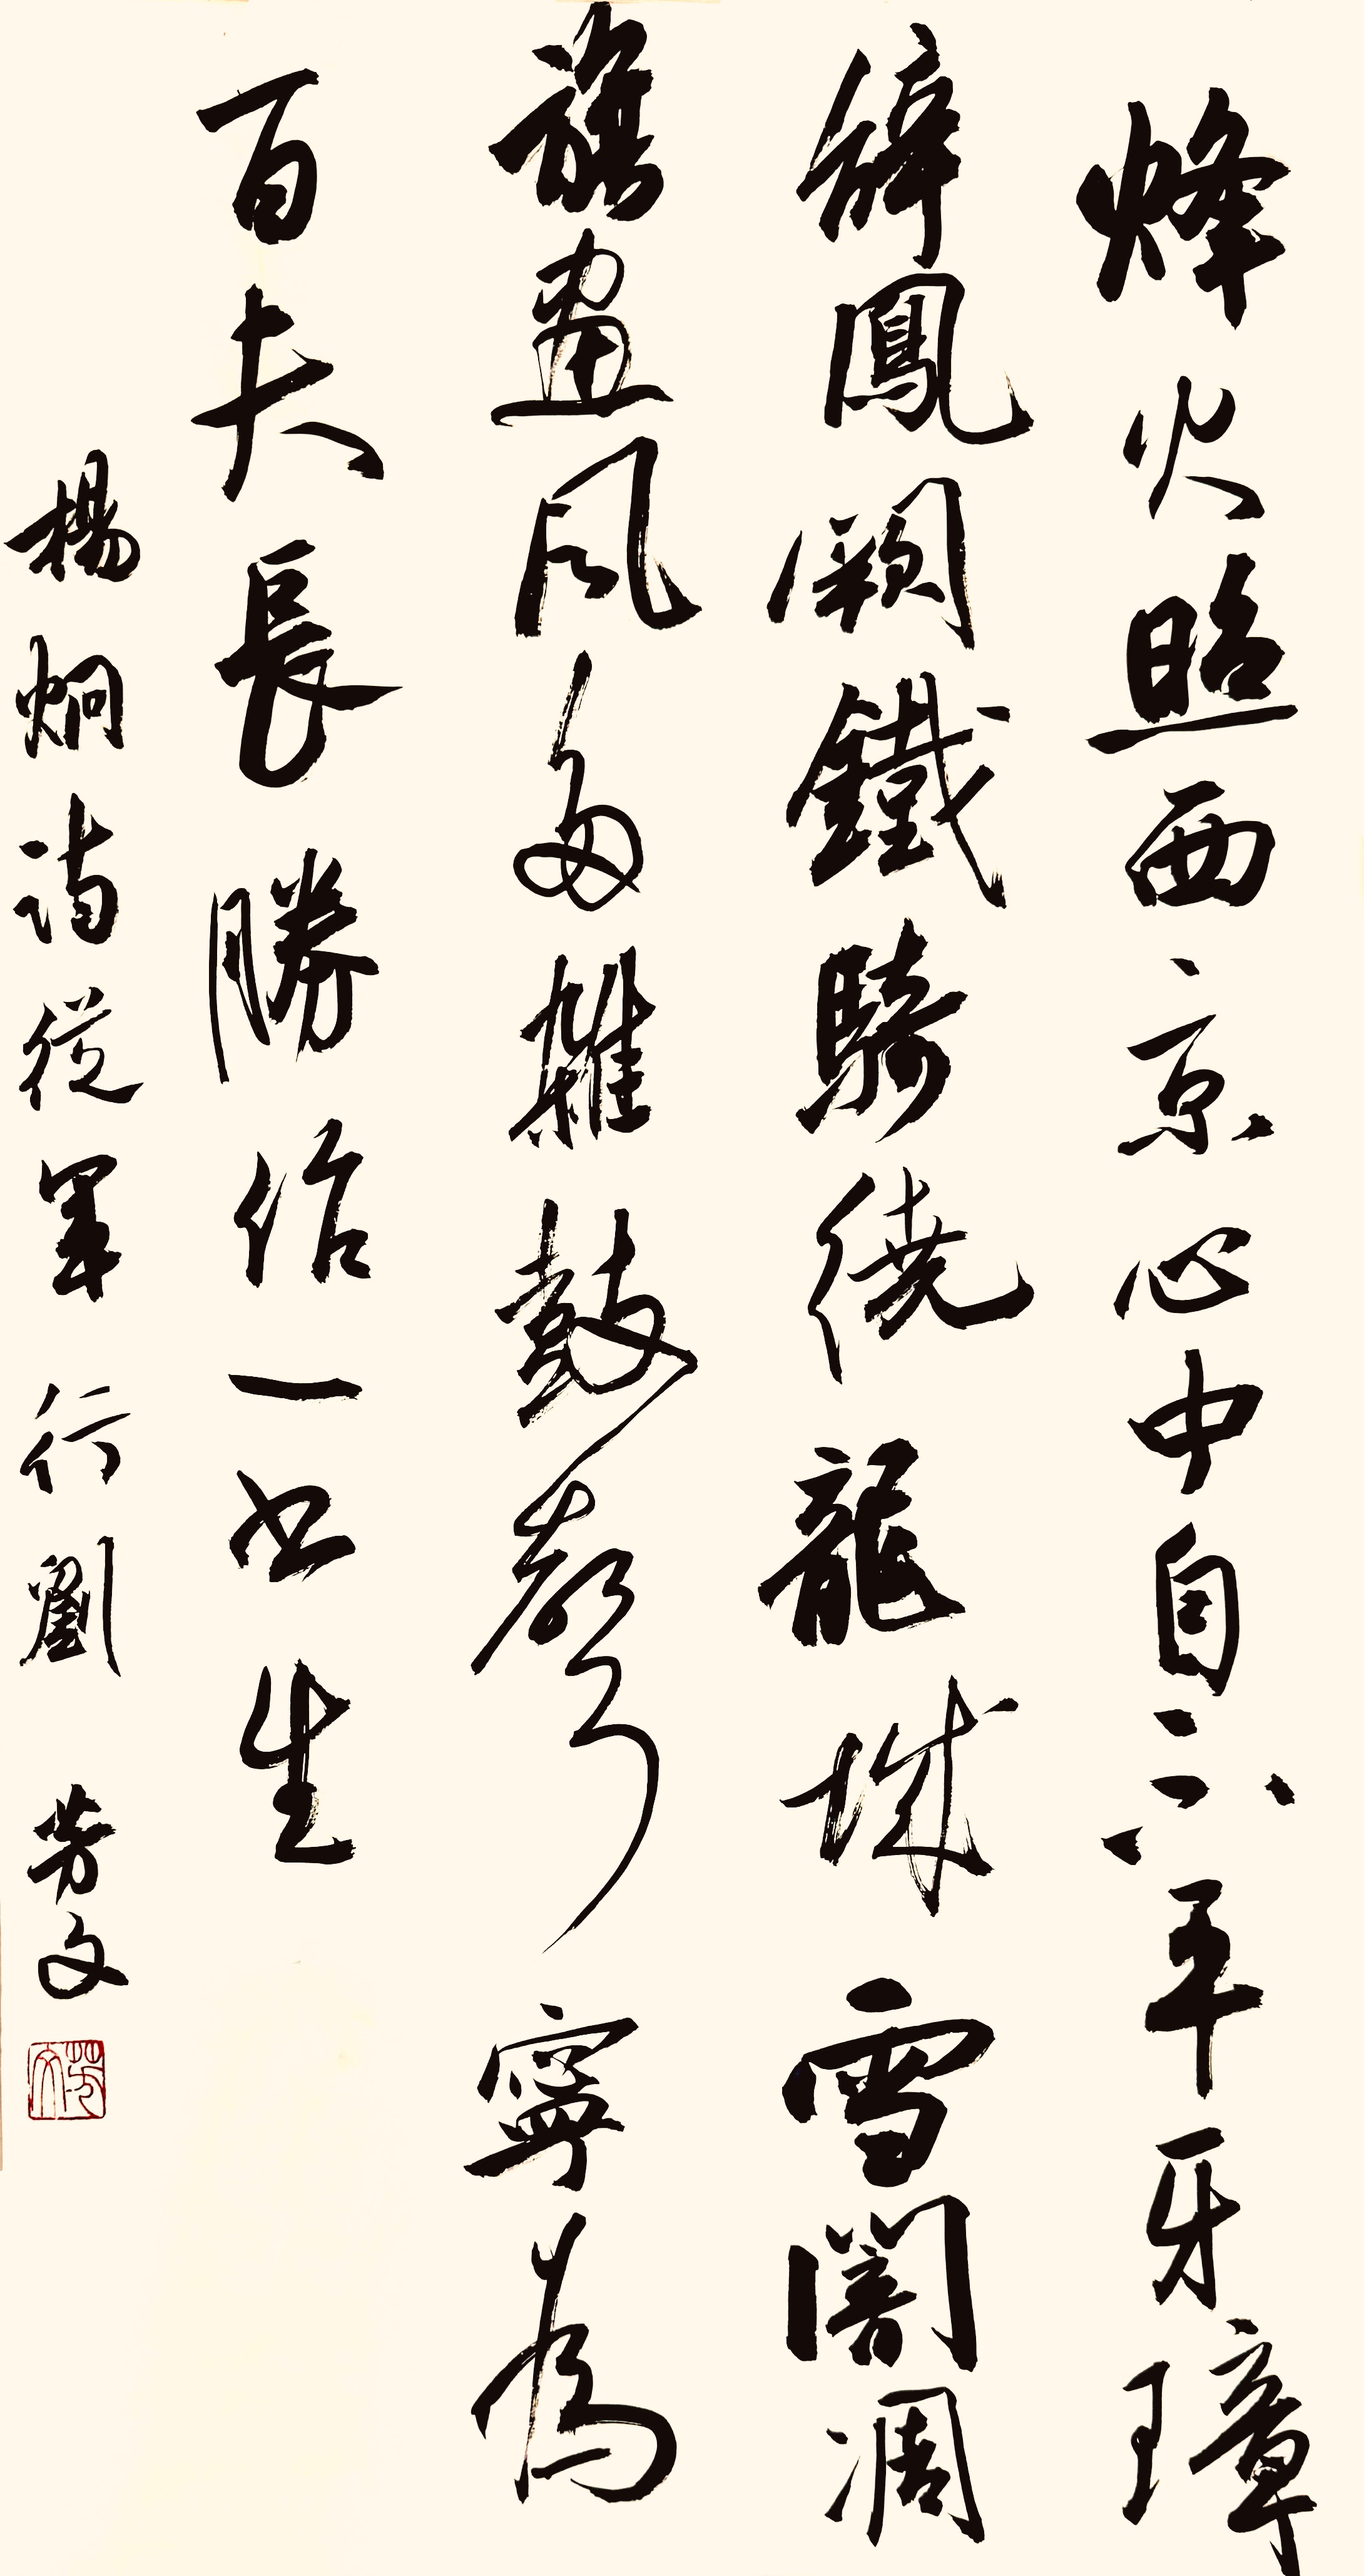 烽火照西京心中自不平牙璋
辞鳳闕鐵騎繞龍城雪闇凋
旗畫風多雜鼓聲寧為
百夫長勝作一書生
楊炯詩從軍行劉芳文
芳文